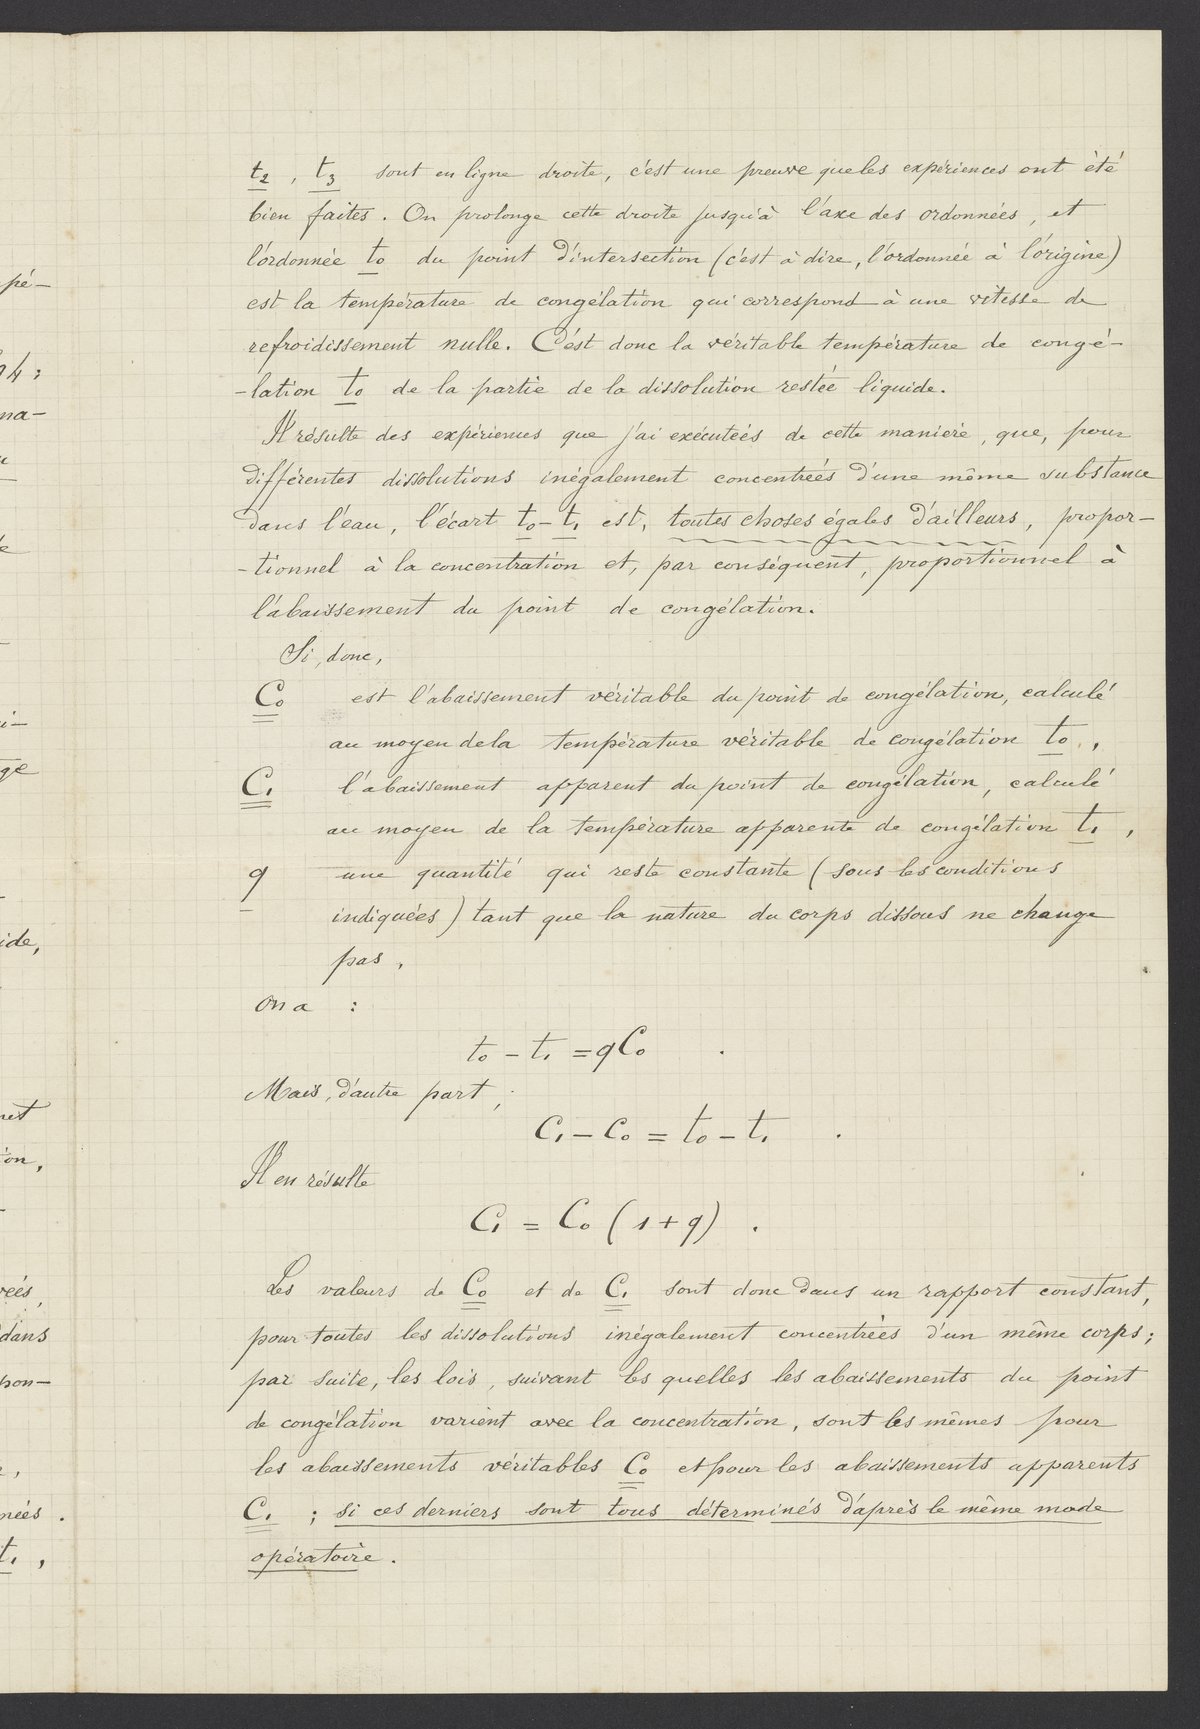 t2, t3 sont en ligne droite, c'est une preuve que les expériences ont été
bien faites. On prolonge cette droite jusqu'à l'axe des ordonnées, et
l'ordonnée t0 du point d'intersection (c'est à dire, l'ordonnée à l'origine)
est la température de congélation qui correspond à une vitesse de
refroidissement nulle. C'est donc la véritable température de congé-
-lation t0 de la partie de la dissolution restée liquide.
Il résulte des expériences que j'ai exécuteés de cette maniere, que, pour
différentes dissolutions inégalement concentreés d'une même substance
dans l'eau, l'écart t0 - t1 est, toutes choses égales d'ailleurs, propor-
-tionnel à la concentration et, par conséquent, proportionnel à
l'abaissement du point de congélation.
Si, donc,
C0 est l'abaissement véritable du point de congélation, calculé
au moyen de la température véritable de congélation t0,
C1 l'abaissement apparent du point de congélation, calculé
au moyen de la température apparente de congélation t1,
q une quantité qui reste constante (sous les conditions
indiqueés) tant que la nature du corps dissous ne change
pas,
on a :
t0 - t1 = qC0 .
Mais, d'autre part,
C1 - C0 = t0 - t1 .
Il en résulte
C1 = C0 (1+q) .
Les valeurs de C0 et de C1 sont donc dans un rapport constant,
pour toutes les dissolutions inégalement concentreés d'un même corps;
par suite, les lois, suivant les quelles les abaissements du point
de congélation varient avec la concentration, sont les mêmes pour
les abaissements véritables C0 et pour les abaissements apparents
C1 ; si ces derniers sont tous déterminés d'après le même mode
opératoire.
pé-
94;
ma-
ge
ide,
ion,
dans
pon-
t1,